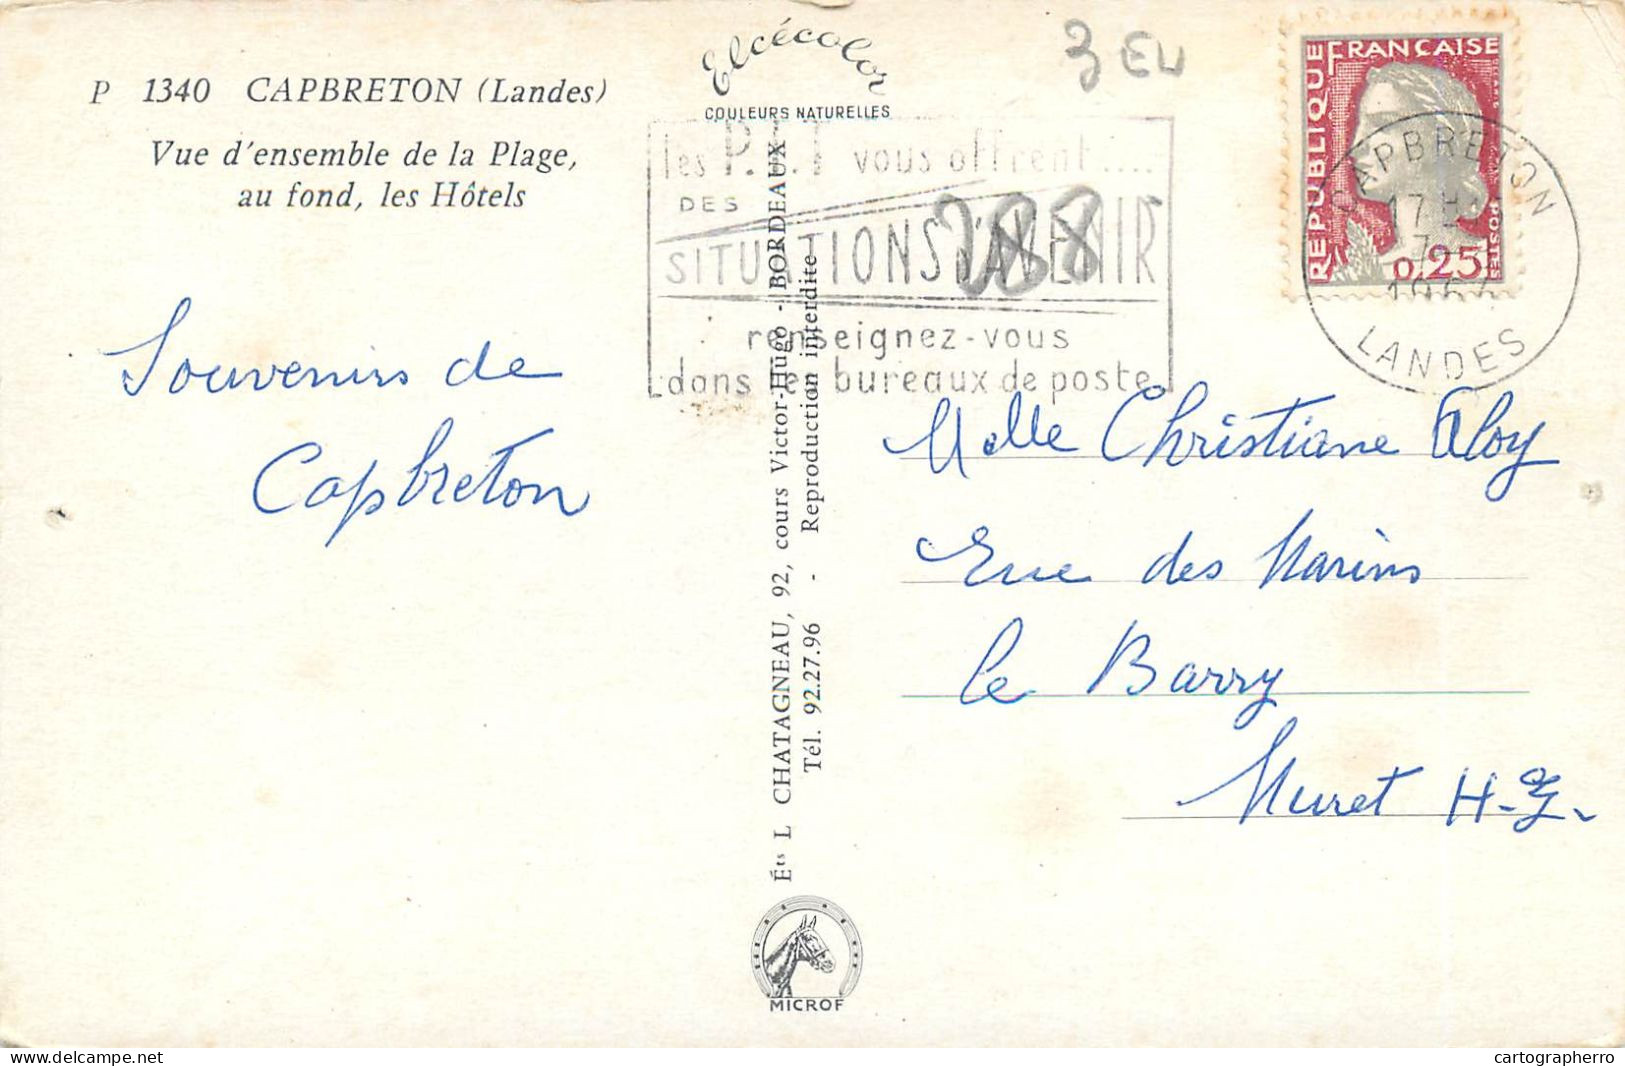 P 1340 CAPBRETON (Landes)
Vue d'ensemble de la Plage,
au fond, les Hôtels
Elcécolor
COULEURS NATURELLES
3 EU
REPUBLIQUE FRANÇAISE
POSTES
0,25
CAPBRETON
17 H
LANDES
les P.T.T vous offrent....
DES
SITUATIONS D'AVENIR
renseignez-vous
dans les bureaux de poste
288
Souvenirs de
Capbreton
Éts L CHATAGNEAU, 92, cours Victor-Hugo - BORDEAUX
Tél. 92.27.96 - Reproduction interdite
Melle Christiane Aloy
Rue des Marins
le Barry
Muret H-G.
MICROF
hosted by delcampe.net
cartographerro